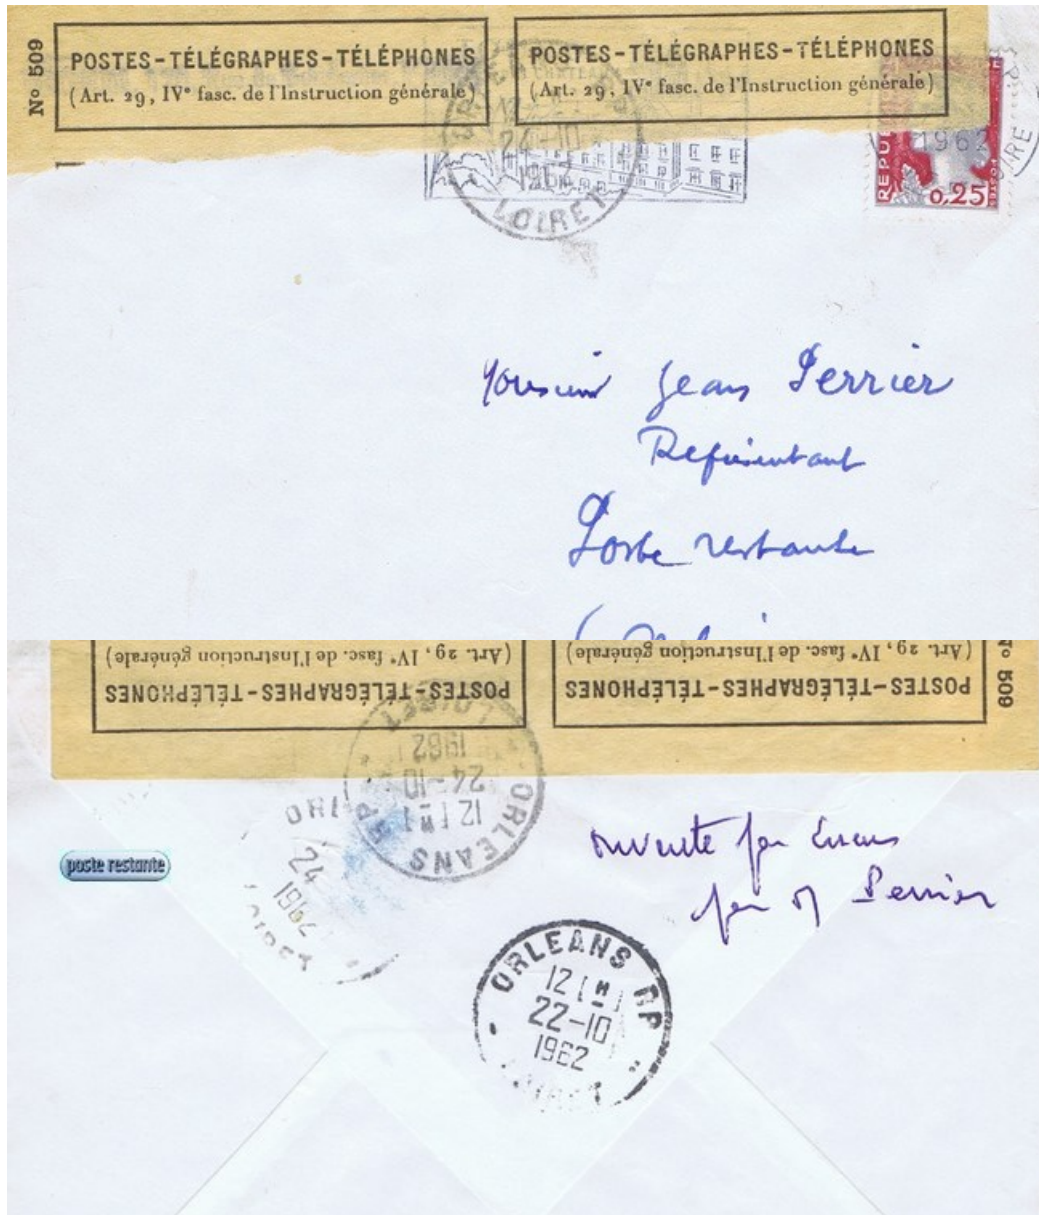 Nº 509
POSTES-TÉLÉGRAPHES-TÉLÉPHONES
(Art. 29, IVᵉ fasc. de l'Instruction générale)
POSTES-TÉLÉGRAPHES-TÉLÉPHONES
(Art. 29, IVᵉ fasc. de l'Instruction générale)
CHATEAU
24-10
1962
LOIRET
REPU
0,25
POSTES
1962
Monsieur Jean Perrier
Représentant
Poste restante
Nº 509
POSTES-TÉLÉGRAPHES-TÉLÉPHONES
(Art. 29, IVᵉ fasc. de l'Instruction générale)
POSTES-TÉLÉGRAPHES-TÉLÉPHONES
(Art. 29, IVᵉ fasc. de l'Instruction générale)
ORLEANS RP
12 H
24-10
1962
LOIRET
24
1962
LOIRET
poste restante
ouverte par erreur
par M Perrier
ORLEANS RP
12 H
22-10
1962
LOIRET